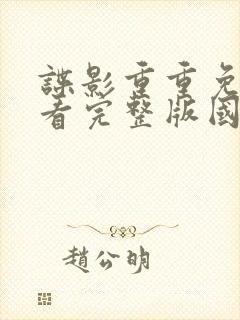 諜影重重免
看完整版國
趙公明